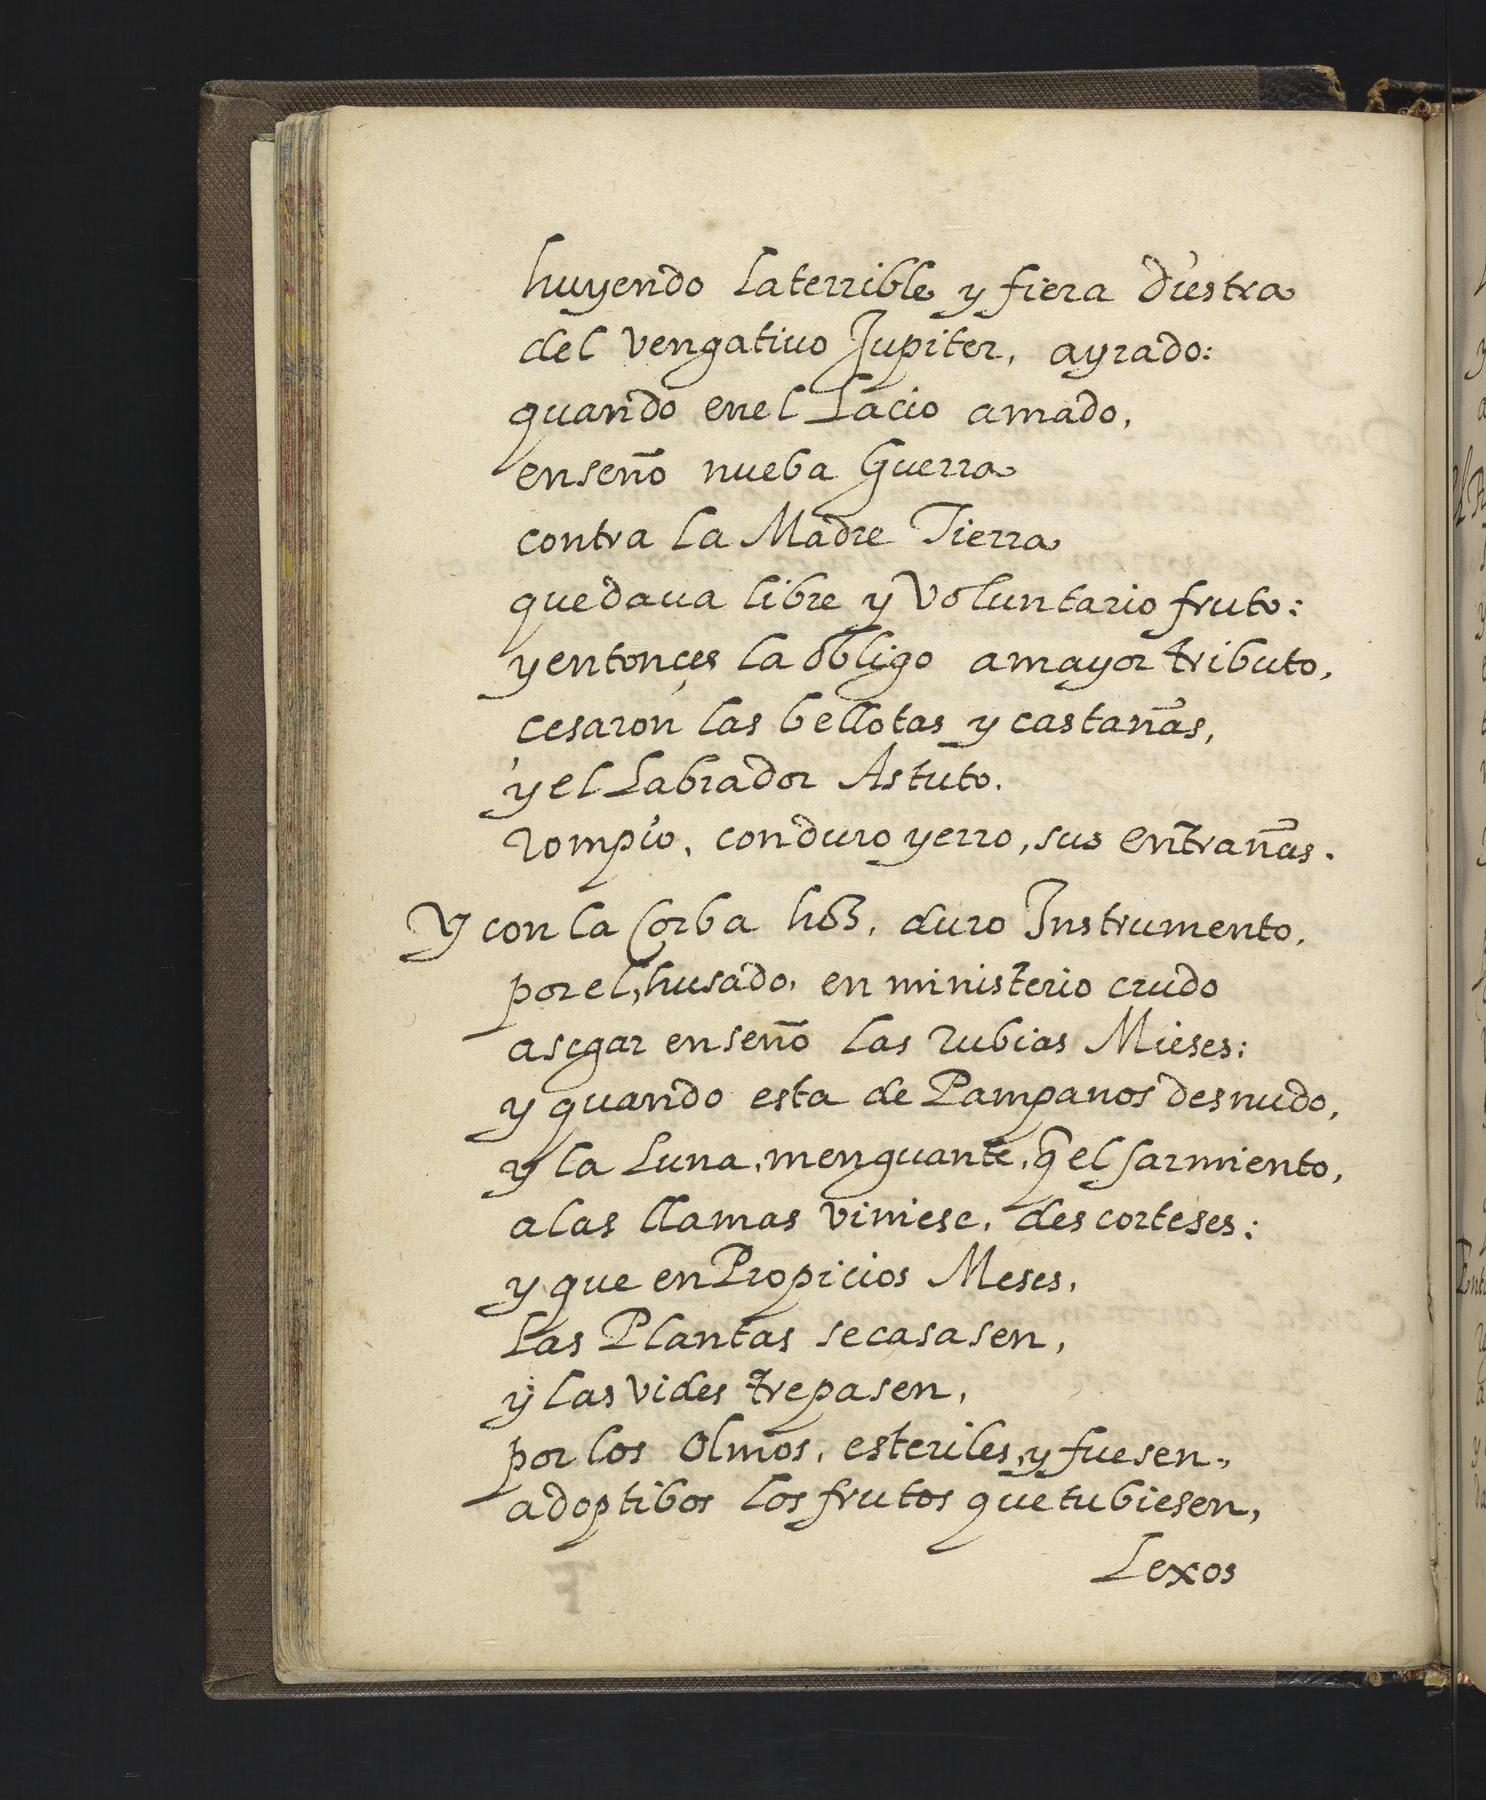 huyendo la terrible y fiera diestra
del vengatiuo Jupiter, ayrado:
quando en el Lacio amado,
enseño nueba Guerra
contra la Madre Tierra
que daua libre y Voluntario fruto:
y entonçes la obligo a mayor tributo,
cesaron las bellotas y castañas,
y el Labrador Astuto.
rompio, con duro yerro, sus entrañas.
Y con la Corba hoz, duro Instrumento,
por el, husado, en ministerio crudo
a segar enseño las rubias Mieses:
y quando esta de Pampanos desnudo,
y la Luna, menguante, q̃ el sarmiento,
a las llamas viniese, descorteses:
y que en Propicios Meses,
las Plantas se casasen,
y las vides trepasen,
por los Olmos, esteriles, y fuesen,
adoptibos los frutos que tubiesen,
Lexos